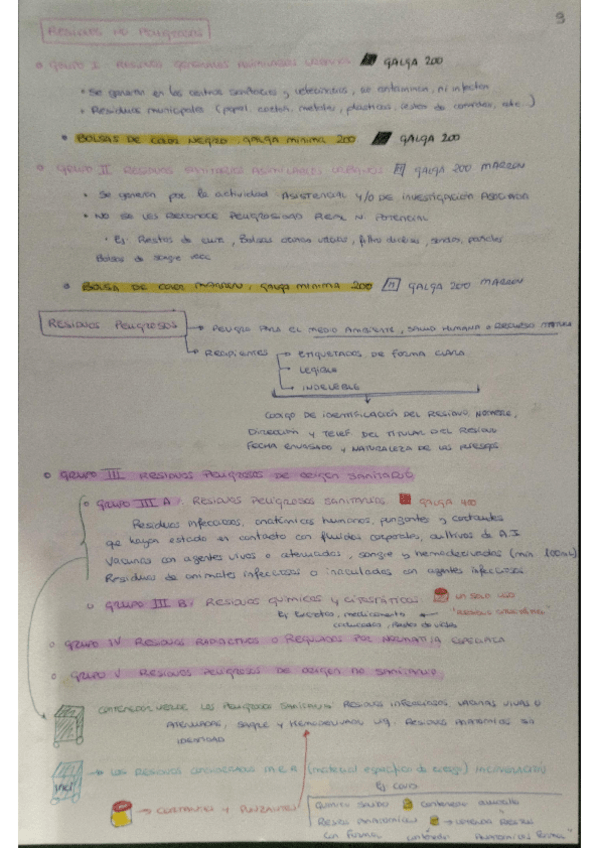 9
RESIDUOS NO PELIGROSOS
GRUPO I: RESIDUOS GENERALES ASIMILABLES URBANOS GALGA 200
• Se generan en los centros sanitarios y veterinarios, ni infectan
• Residuos municipales (papel, cartón, metales, plásticos, restos de comidas, etc.)
• BOLSAS DE COLOR NEGRO, galga mínima 200 GALGA 200
GRUPO II: RESIDUOS SANITARIOS ASIMILABLES URBANOS GALGA 200 MARRÓN
• Se generan por la actividad ASISTENCIAL Y/O DE INVESTIGACIÓN ASOCIADA
• NO SE LES RECONOCE PELIGROSIDAD REAL NI POTENCIAL
• Ej: Restos de cura, Bolsas orina vacías, filtro diálisis, sondas, pañales
Bolsas de sangre vacía
• BOLSA DE COLOR MARRÓN, galga mínima 200 GALGA 200 MARRÓN
RESIDUOS PELIGROSOS → PELIGRO PARA EL MEDIO AMBIENTE, SALUD HUMANA O RECURSO NATURAL
→ RECIPIENTES → ETIQUETADOS DE FORMA CLARA
→ LEGIBLE
→ INDELEBLE
CODIGO DE IDENTIFICACIÓN DEL RESIDUO, NOMBRE,
DIRECCIÓN Y TELEF. DEL TITULAR DEL RESIDUO
FECHA ENVASADO Y NATURALEZA DE LOS RIESGOS
GRUPO III: RESIDUOS PELIGROSOS DE ORIGEN SANITARIO
GRUPO III A: RESIDUOS PELIGROSOS SANITARIOS GALGA 400
Residuos infecciosos, anatómicos humanos, punzantes y cortantes
que hayan estado en contacto con fluidos corporales, cultivos de A.I
Vacunas con agentes vivos o atenuados, sangre y hemoderivados (min 100mL)
Residuos de animales infecciosos o inoculados con agentes infecciosos.
GRUPO III B: RESIDUOS QUÍMICOS Y CITOSTÁTICOS UN SOLO USO
medicamento "RESIDUO CITOSTÁTICO"
GRUPO IV RESIDUOS RADIACTIVOS O REGULADOS POR NORMATIVA ESPECÍFICA
GRUPO V RESIDUOS PELIGROSOS DE ORIGEN NO SANITARIO
CONTENEDOR VERDE LOS PELIGROSOS SANITARIOS RESIDUOS INFECCIOSOS VACUNAS VIVAS O
ATENUADAS, SANGRE Y HEMODERIVADOS RESIDUOS ANATÓMICOS SIN
IDENTIDAD
MER → LOS RESIDUOS CONSIDERADOS M.E.R (material específico de riesgo) INCINERACIÓN
→ CORTANTES Y PUNZANTES
QUÍMICO SÓLIDO contenedor amarillo
RESTOS ANATÓMICOS → LEYENDA RESTOS
con formol contenedor